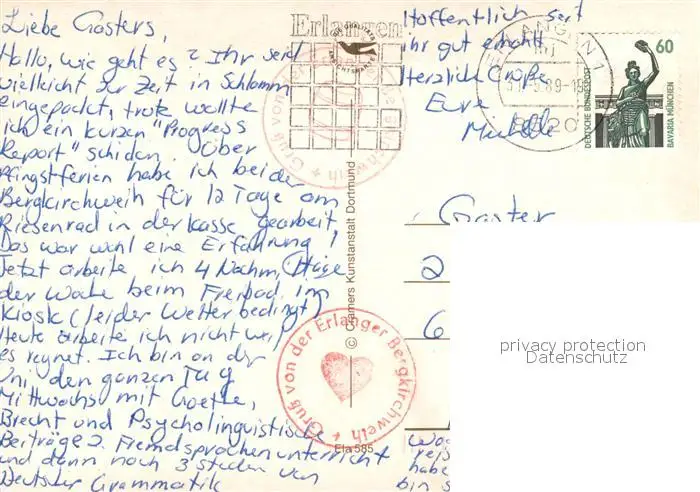 Liebe Gasters,
Hallo, wie geht es? Ihr seid
vielleicht zur Zeit in Schlamm
eingepackt, trotz wollte
ich ein kurzen "Progress
Report" schiden. Über
Pfingstferien habe ich bei der
Bergkirchweih für 12 Tage am
Riesenrad in der Kasse gearbeit,
Das war wohl eine Erfahrung!
Jetzt arbeite ich 4 Nachm, Tage
der Woche beim Freibad im
Kiosk (leider Wetter bedingt)
Heute arbeite ich nicht weil
es regnet. Ich bin an der
Uni den ganzen Tag
Mittwochs mit Goethe,
Brecht und Psycholinguistische
Beiträge z. Fremdsprachenunterricht
und dann noch 3 stunden von
Deutscher Grammatik
Hoffentlich seit
ihr gut erholt
Herzliche Grüße
Eure
Michelle
Erlangen
ERLANGEN 1
8520
60
DEUTSCHE BUNDESPOST
BAVARIA MÜNCHEN
Gruß von der Erlanger Bergkirchweih +
Gruß von der Erlanger Bergkirchweih +
© Cramers Kunstanstalt Dortmund
Ela 585
Gaster
2
6
privacy protection
Datenschutz
habe
bin s